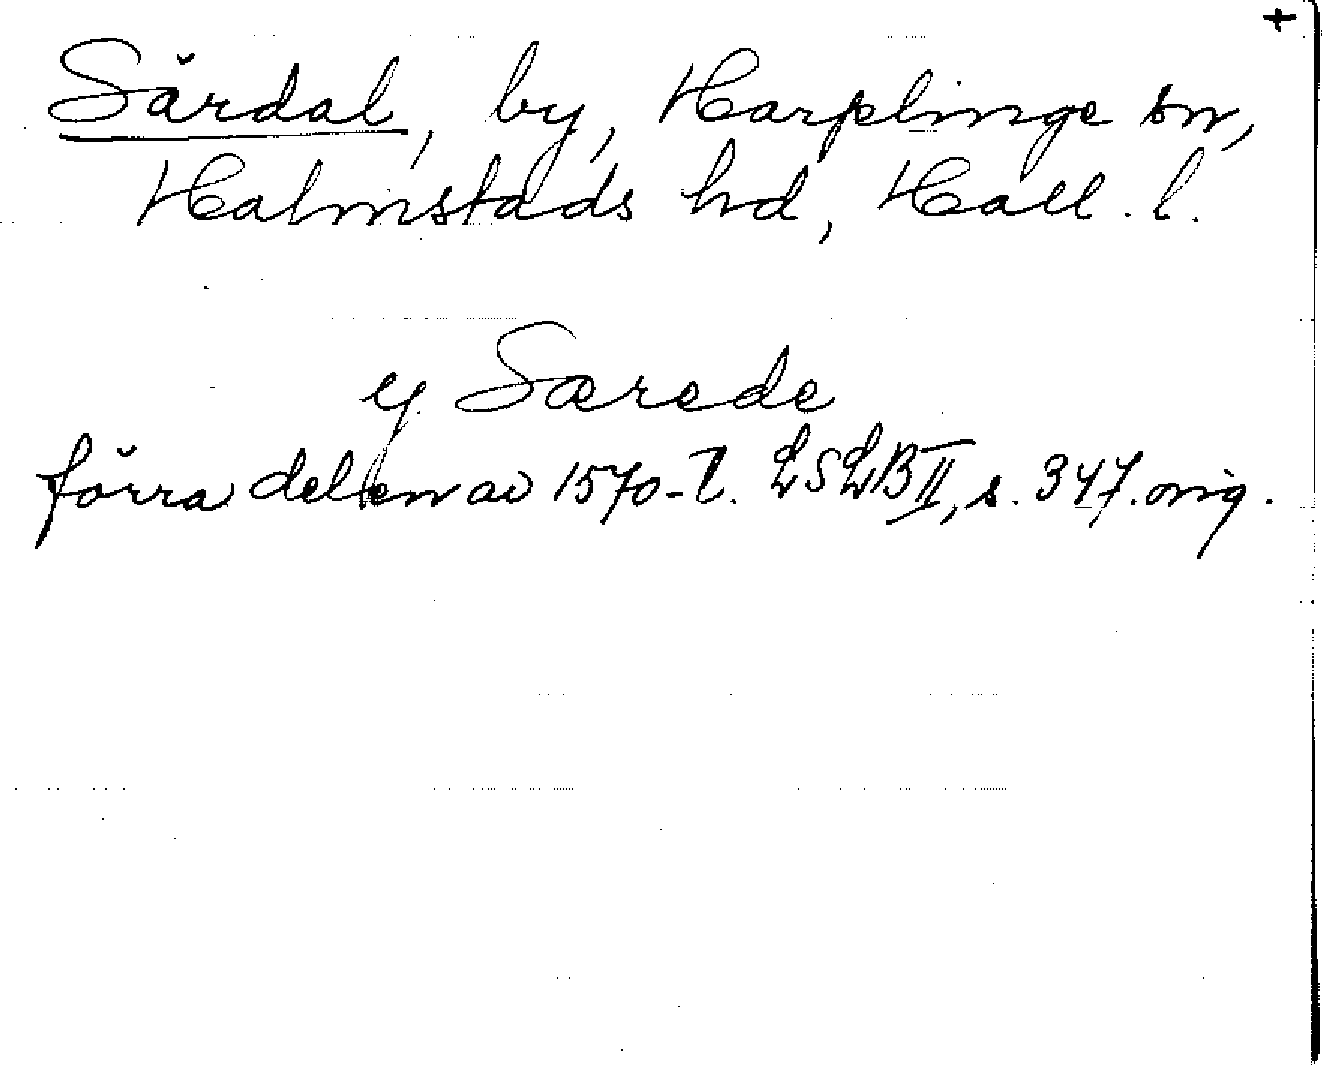 +
Särdal, by, Harplinge sn,
Halmstads hd, Hall. l.
y Særede
förra delen av 1570-t. LSLB II, s. 347. orig.